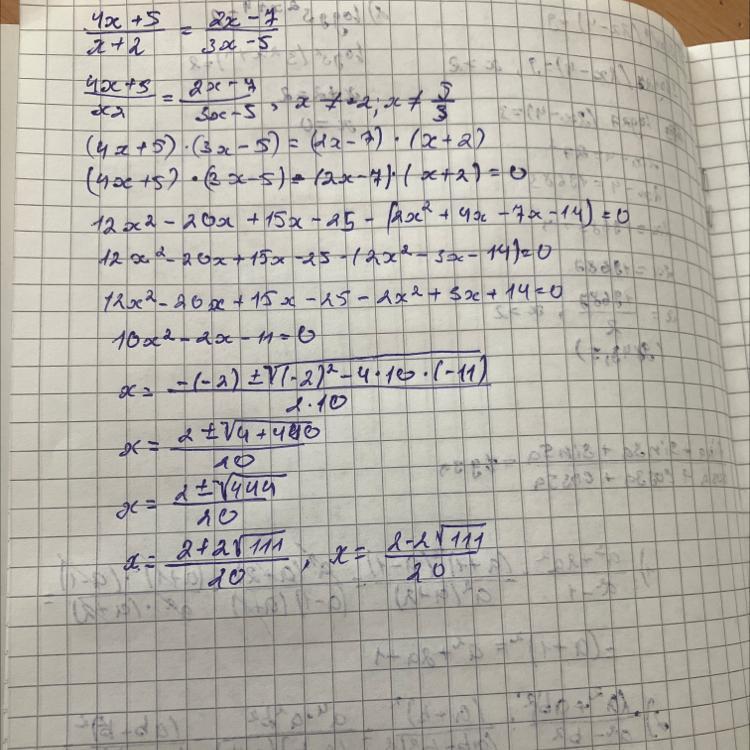 (4x+5)/(x+2) = (2x-7)/(3x-5)
(4x+5)/(x2) = (2x-7)/(3x-5), x ≠ -2; x ≠ 5/3
(4x+5)·(3x-5) = (2x-7)·(x+2)
(4x+5)·(3x-5) - (2x-7)·(x+2) = 0
12x² - 20x + 15x - 25 - (2x² + 4x - 7x - 14) = 0
12x² - 20x + 15x - 25 - (2x² - 3x - 14) = 0
12x² - 20x + 15x - 25 - 2x² + 3x + 14 = 0
10x² - 2x - 11 = 0
x = (-(-2) ± √((-2)² - 4·10·(-11)))/(2·10)
x = (2 ± √(4 + 440))/20
x = (2 ± √444)/20
x = (2 + 2√111)/20, x = (2 - 2√111)/20